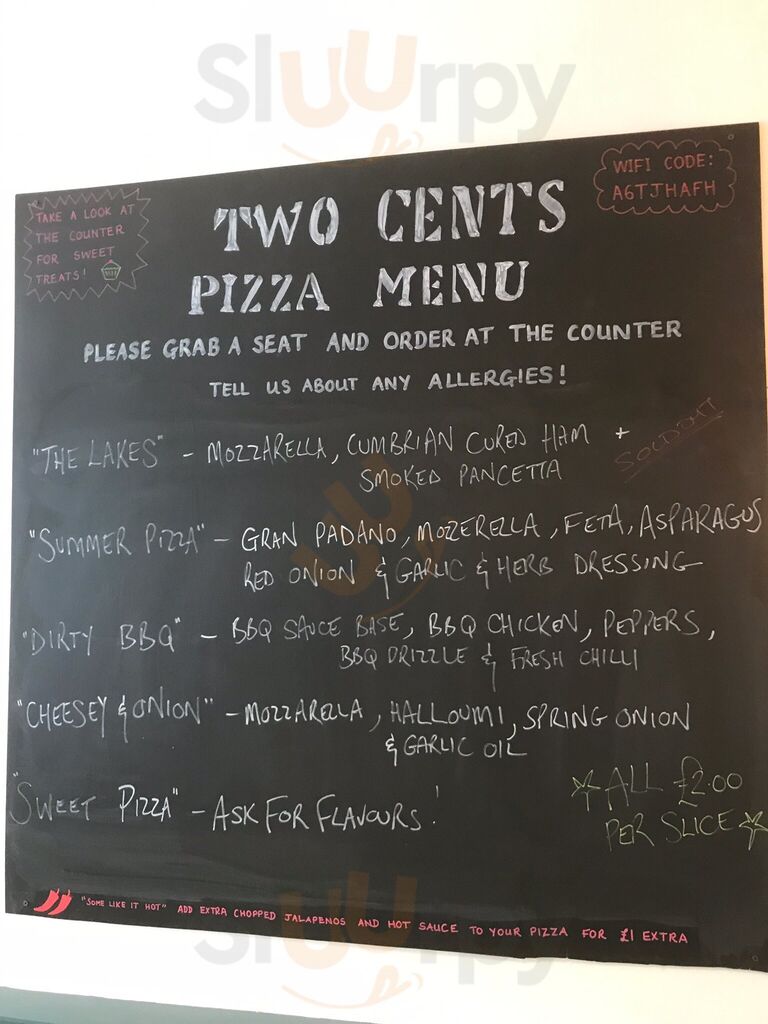 Sluurpy
TAKE A LOOK AT
THE COUNTER
FOR SWEET
TREATS!
WIFI CODE:
A6TJHAFH
TWO CENTS
PIZZA MENU
PLEASE GRAB A SEAT AND ORDER AT THE COUNTER
TELL US ABOUT ANY ALLERGIES!
"THE LAKES" - MOZZARELLA, CUMBRIAN CURED HAM +
SMOKED PANCETTA
SOLD OUT
"SUMMER PIZZA" - GRAN PADANO, MOZZERELLA, FETA, ASPARAGUS
RED ONION & GARLIC & HERB DRESSING
"DIRTY BBQ" - BBQ SAUCE BASE, BBQ CHICKEN, PEPPERS,
BBQ DRIZZLE & FRESH CHILLI
"CHEESEY & ONION" - MOZZARELLA, HALLOUMI, SPRING ONION
& GARLIC OIL
"SWEET PIZZA" - ASK FOR FLAVOURS!
ALL £2.00
PER SLICE
"SOME LIKE IT HOT" ADD EXTRA CHOPPED JALAPENOS AND HOT SAUCE TO YOUR PIZZA FOR £1 EXTRA
Sluurpy